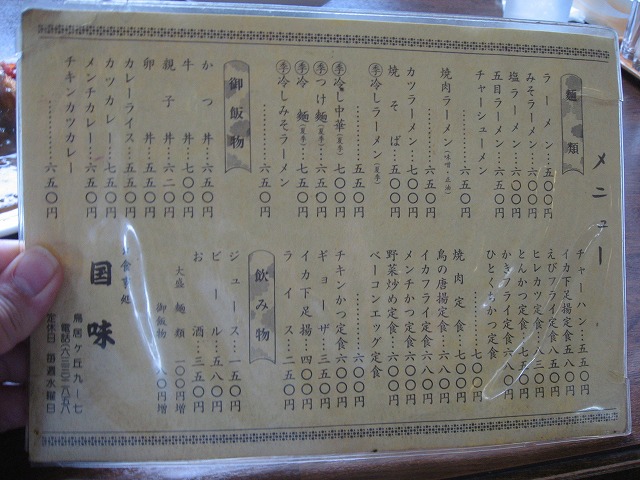 メニュー
麺類
ラーメン…五〇〇円
みそラーメン…六〇〇円
塩ラーメン…六〇〇円
五目ラーメン…六五〇円
チャーシューメン
…六五〇円
焼肉ラーメン(味噌・正油)
…六五〇円
カツラーメン…七〇〇円
焼そば…五〇〇円
季冷しラーメン(夏季)
…五五〇円
季冷し中華(夏季)…七〇〇円
季つけ麺(夏季)…六五〇円
季冷麺(夏季)…七五〇円
季冷しみそラーメン
…六五〇円
御飯物
かつ丼…六五〇円
牛丼…七〇〇円
親子丼…六二〇円
卵丼…五五〇円
カレーライス…五五〇円
カツカレー…七五〇円
メンチカレー…六五〇円
チキンカツカレー
…六五〇円
チャーハン…五五〇円
イカ下足揚定食五八〇円
えびフライ定食八五〇円
ヒレカツ定食…八三〇円
とんかつ定食…六五〇円
かきフライ定食六八〇円
ひとくちかつ定食
…七〇〇円
焼肉定食…七〇〇円
鳥の唐揚定食…六八〇円
イカフライ定食六八〇円
メンチかつ定食六〇〇円
野菜炒め定食…六〇〇円
ベーコンエッグ定食
…六〇〇円
チキンかつ定食六〇〇円
ギョーザ…三五〇円
イカ下足揚…四〇〇円
ライス…二五〇円
飲み物
ジュース…一五〇円
ビール…五八〇円
お酒…三五〇円
大盛 麺類 一〇〇円増
御飯物 八〇円増
お食事処
国味
鳥居ヶ丘九ー七
定休日 毎週水曜日